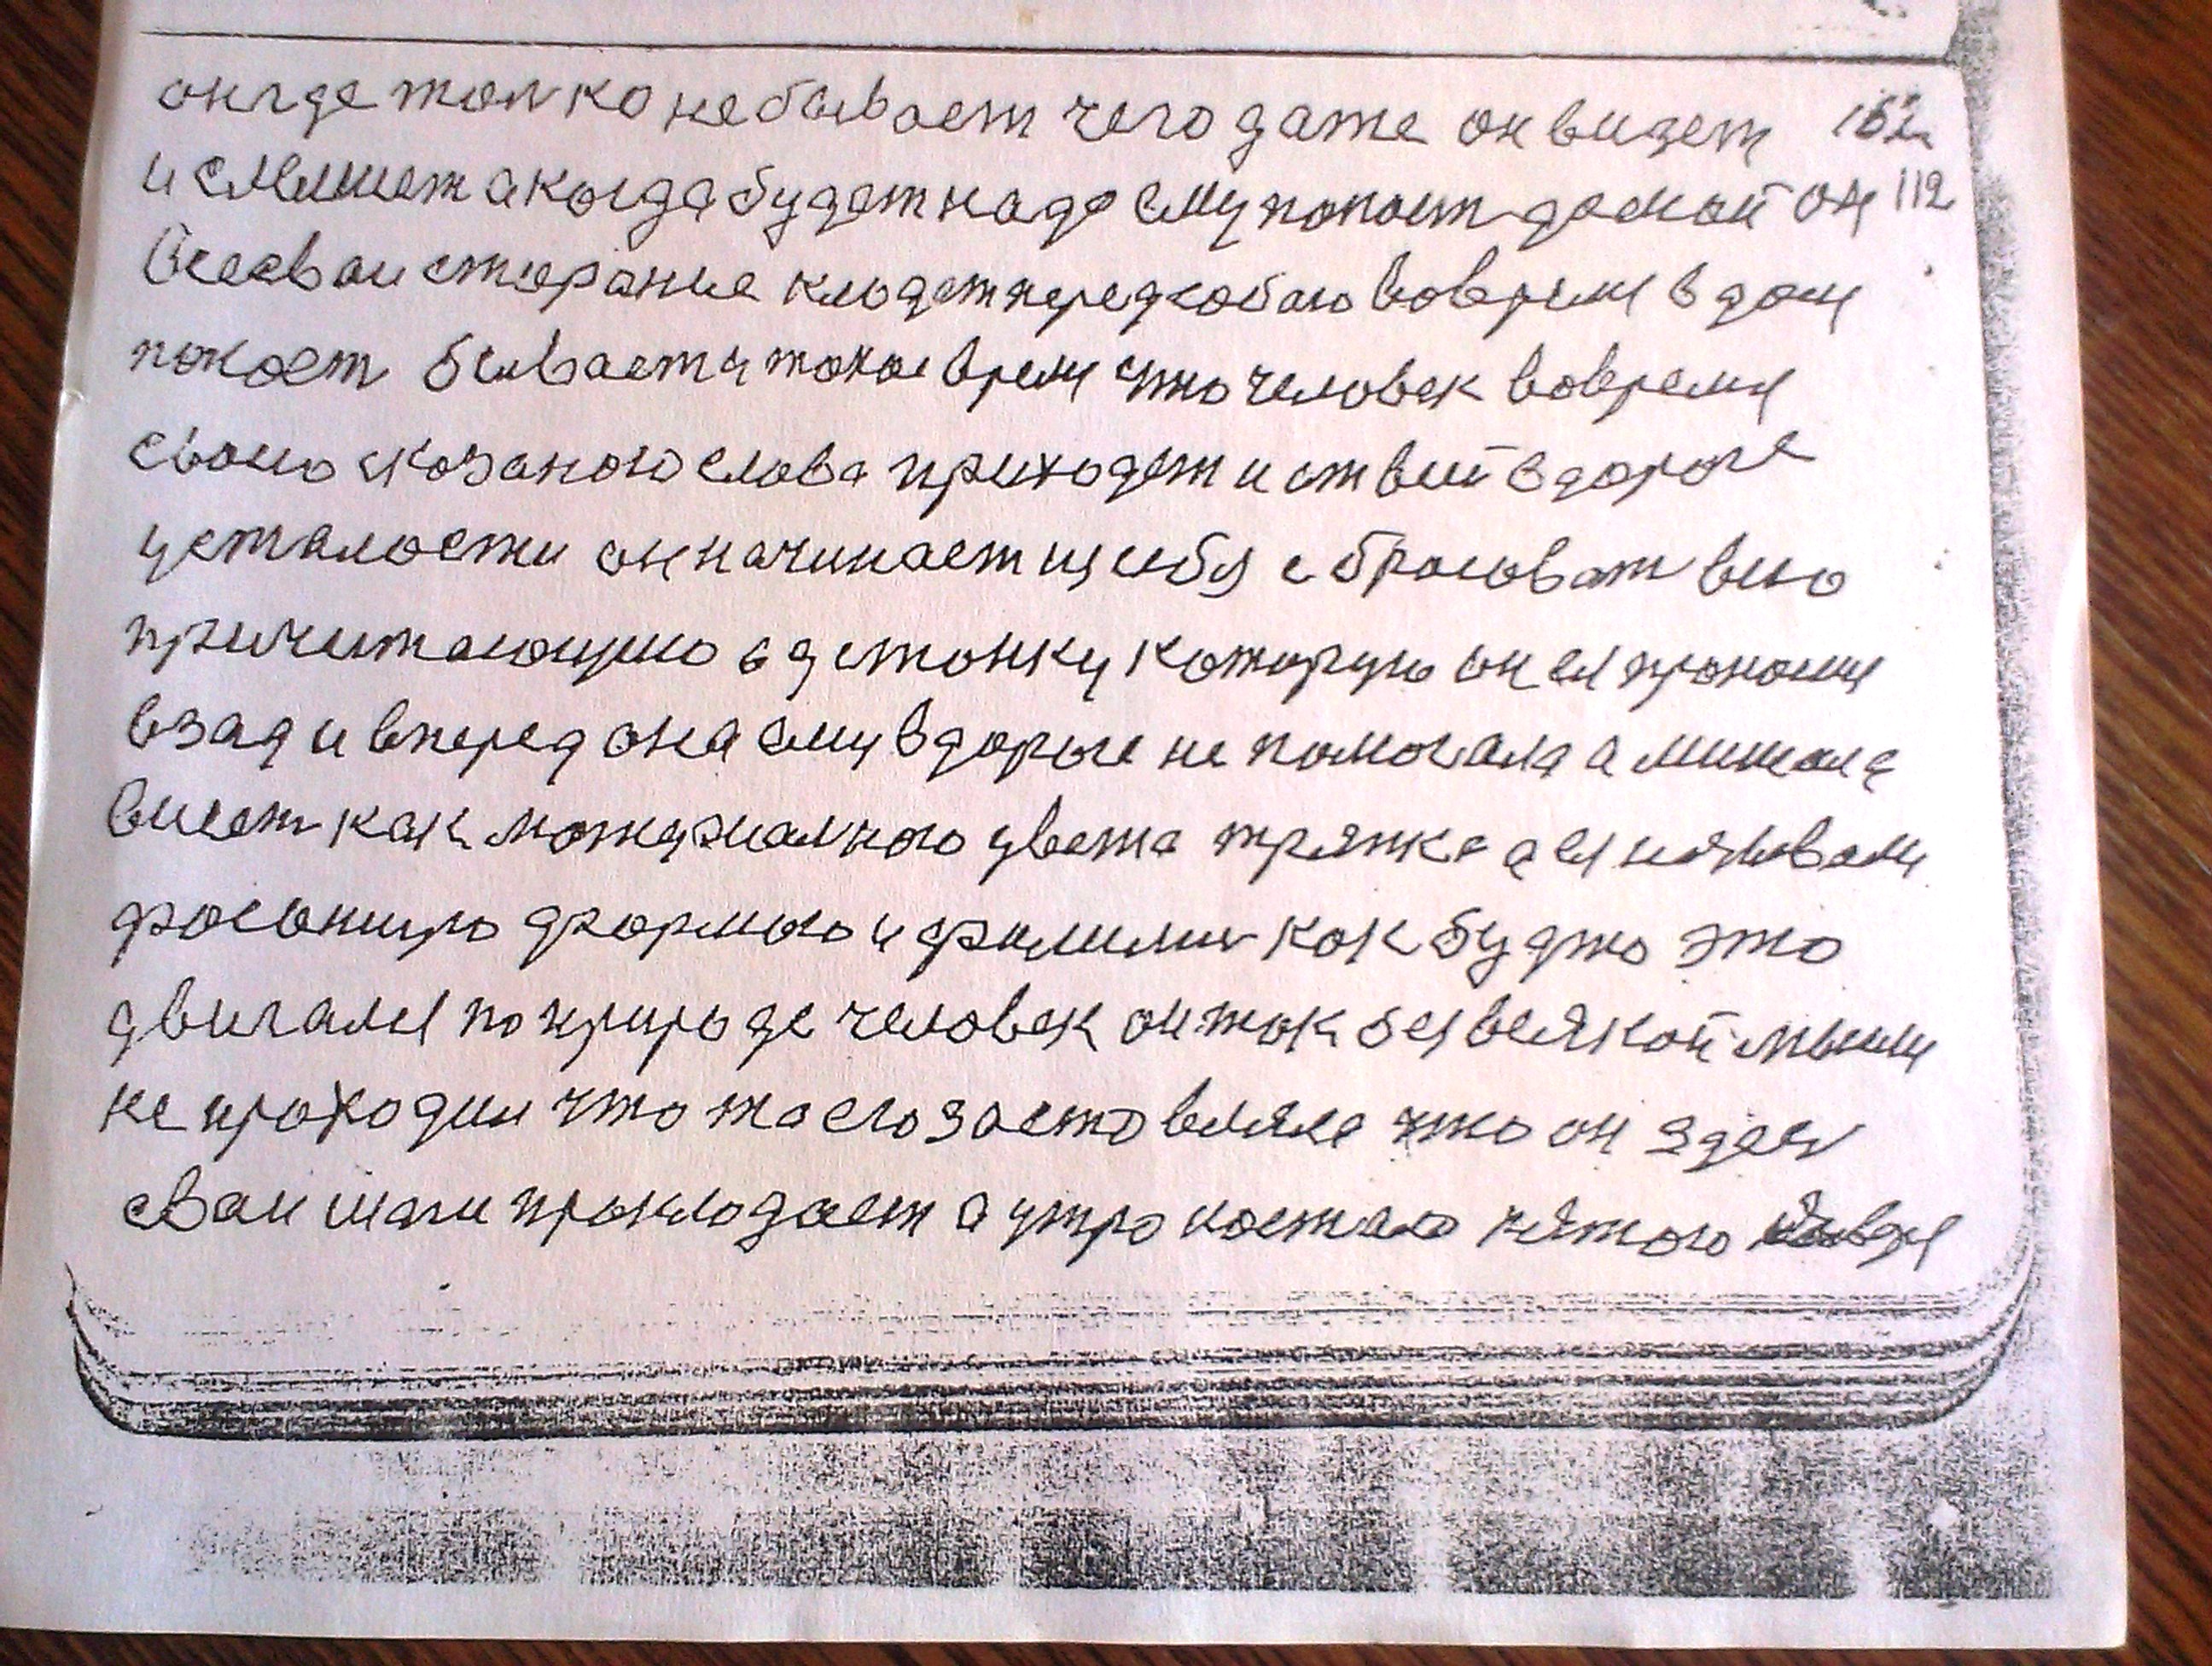 он где толко не бывает чего даже он видет 152
и слышет а когда будет надо ему попаст домой он 112
Все сваи старание кладет перед собаю вовремя в дом
попаст бывает и такое время что человек вовремя
своио сказаного слова приходет и от всий в дороге
усталости он начинает из себя сбрасоват всю
причитающуюю одетонку которую он ея пронаше
взад и вперед она ему в дороге не помогала а мишала
висет как матуриалного цвета тряпка а ея називали
фасониую формаю и фимили как будто это
двигался по природе человек он так без всякой мысли
не проходил что та его заставляла что он здес
сваи шаги прокладает а утро настало пятого